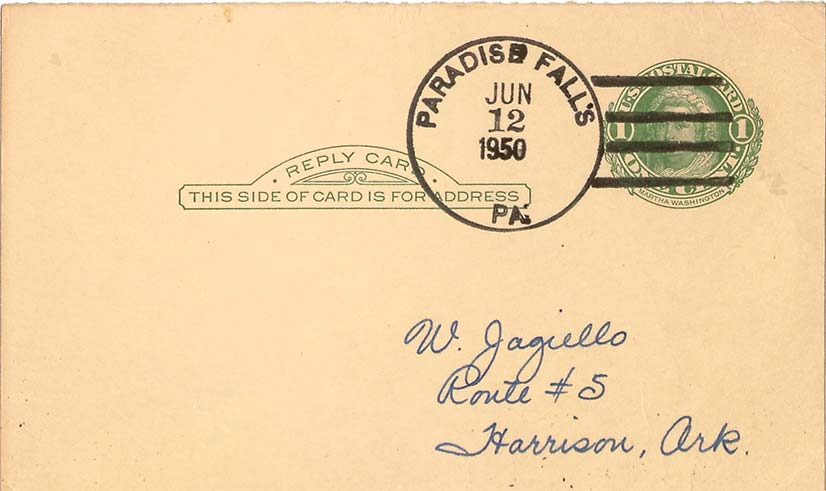 PARADISE FALL'S
JUN
12
1950
PA.
U.S. POSTAL CARD
1 1
ONE CENT
MARTHA WASHINGTON
· REPLY CARD ·
THIS SIDE OF CARD IS FOR ADDRESS
W. Jagiello
Route # 5
Harrison, Ark.